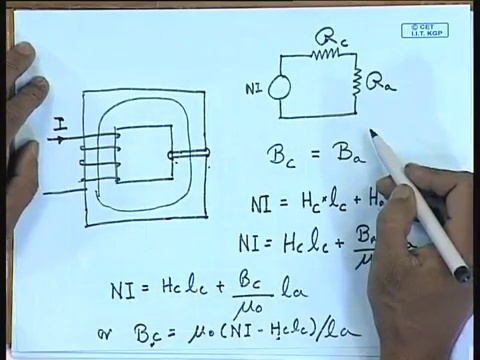 © CET
I.I.T. KGP
R_c
I
NI
R_a
B_c = B_a
NI = H_c × l_c + H
NI = H_c l_c + B
NI = H_c l_c + B_c/μ_0 l_a
or B_c = μ_0 (NI - H_c l_c)/l_a